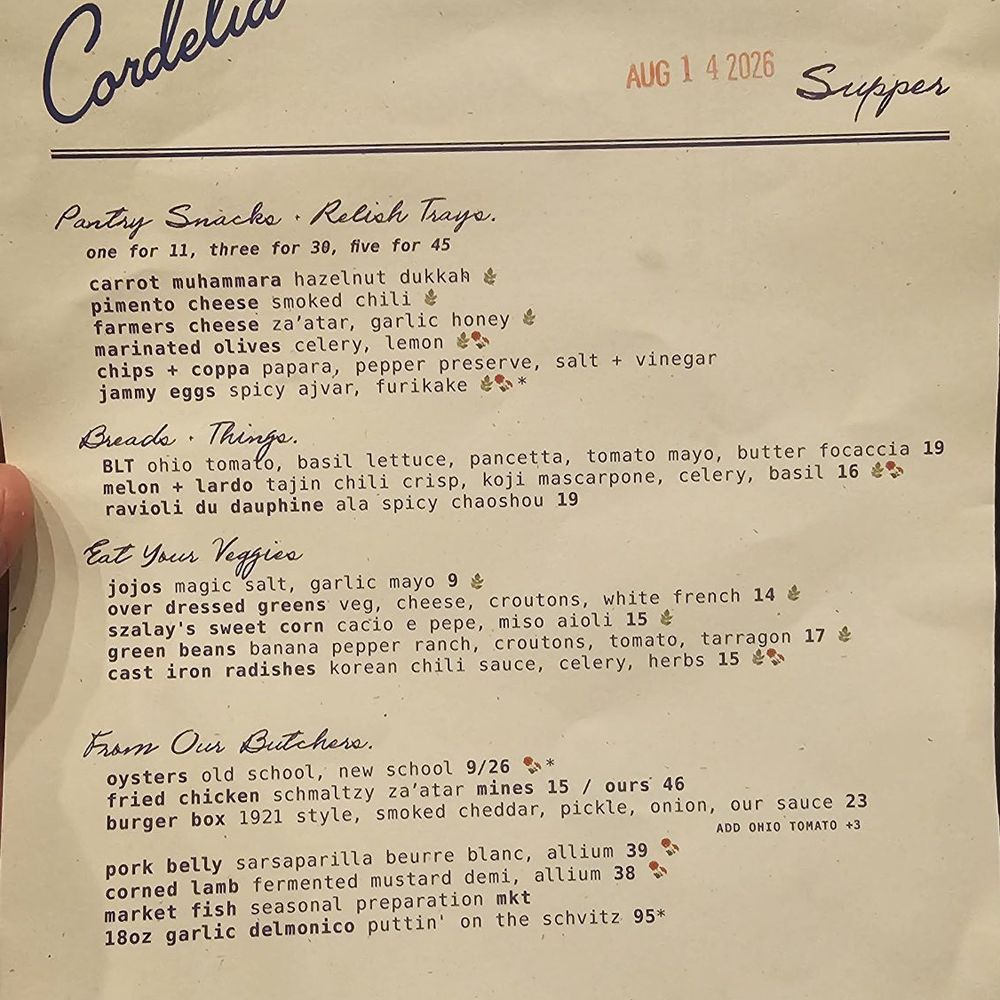 Cordelia
AUG 14 2026
Supper
Pantry Snacks · Relish Trays.
one for 11, three for 30, five for 45
carrot muhammara hazelnut dukkah
pimento cheese smoked chili
farmers cheese za'atar, garlic honey
marinated olives celery, lemon
chips + coppa papara, pepper preserve, salt + vinegar
jammy eggs spicy ajvar, furikake *
Breads · Things.
BLT ohio tomato, basil lettuce, pancetta, tomato mayo, butter focaccia 19
melon + lardo tajin chili crisp, koji mascarpone, celery, basil 16
ravioli du dauphine ala spicy chaoshou 19
Eat Your Veggies
jojos magic salt, garlic mayo 9
over dressed greens veg, cheese, croutons, white french 14
szalay's sweet corn cacio e pepe, miso aioli 15
green beans banana pepper ranch, croutons, tomato, tarragon 17
cast iron radishes korean chili sauce, celery, herbs 15
From Our Butchers.
oysters old school, new school 9/26 *
fried chicken schmaltzy za'atar mines 15 / ours 46
burger box 1921 style, smoked cheddar, pickle, onion, our sauce 23
ADD OHIO TOMATO +3
pork belly sarsaparilla beurre blanc, allium 39
corned lamb fermented mustard demi, allium 38
market fish seasonal preparation mkt
18oz garlic delmonico puttin' on the schvitz 95*